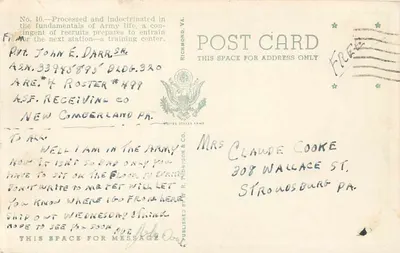 No. 16.—Processed and indoctrinated in
the fundamentals of Army life, a con-
tingent of recruits prepares to entrain
for the next station—a training center.
FROM
PVT. JOHN E. DARR SR.
A.S.N. 33945895 BLDG. 320
ARE. #4 ROSTER #499
A.S.F. RECEIVING CO
NEW CUMBERLAND PA.
TO ALL
WELL I AM IN THE ARMY
NOW IT ISN'T SO BAD ONLY YOU
HAVE TO SIT ON THE FLOOR TO
DON'T WRITE TO ME YET WILL LET
YOU KNOW WHERE I GO FROM HERE
SHIP OUT WEDNESDAY I THINK
HOPE TO SEE YOU SOON
THIS SPACE FOR MESSAGE
RICHMOND, VA.
POST CARD
THIS SPACE FOR ADDRESS ONLY
FREE
MRS CLAUDE COOKE
308 WALLACE ST.
STROUDSBURG PA.